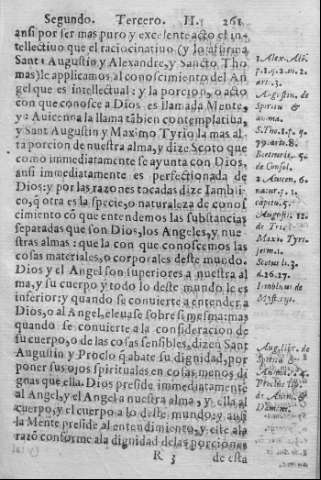 Segundo. Tercero. II. 261
ansi por ser mas puro y excelente acto el in-
tellectiuo que el raciocinatiuo (y lo afirma
Sant Augustin y Alexandre, y Sancto Tho
mas) le applicamos al conoscimiento del An
gel que es intellectual: y la porcion, o acto
con que conosce a Dios es llamada Mente,
y Auicenna la llama tãbien contemplatiua,
y Sant Augustin y Maximo Tyrio la mas al
ta porcion de nuestra alma, y dize Scoto que
como immediatamente se ayunta con Dios,
ansi immediatamente es perfectionada de
Dios: y por las razones tocadas dize Iambli
co, q̃ otra es la specie, o naturaleza de conos
cimiento cõ que entendemos las substancias
separadas que son Dios, los Angeles, y nue-
stras almas: que la con que conoscemos las
cosas materiales, o corporales deste mundo.
Dios y el Angel son superiores a nuestra al
ma, y su cuerpo y todo lo deste mundo le es
inferior: y quando se conuierte a entender a
Dios, o al Angel, eleuase sobre si mesma: mas
quando se conuierte a la consideracion de
su cuerpo, o de las cosas sensibles, dizen Sant
Augustin y Proclo q̃ abate su dignidad, por
poner sus ojos spirituales en cosas menos di
gnas que ella. Dios preside immediatamente
al Angel, y el Angel a nuestra alma, y ella al
cuerpo, y el cuerpo a lo deste mundo: y ansi
la Mente preside al entendimiento, y este a la
razõ conforme a la dignidad de las porciones
R 3 de esta
1. Alex. Ald.
p. 2. q.
art. 3.
Augustin. de
Spiritu &
anima.
S. Tho. 1. q.
79. art. 8.
Boetius. 5.
de Consol.
2. Auicen. 6.
natur. p. 1.
capitu. 5.
August. 12.
de Trini.
Maxi. Tyri.
serm. 1.
Scotus li. 3.
d. 26. 27.
Iamblicus de
Myster.
Aug. lib. de
Spiritu &
Anima.
Proclus lib.
de Anim. &
Dæmon.